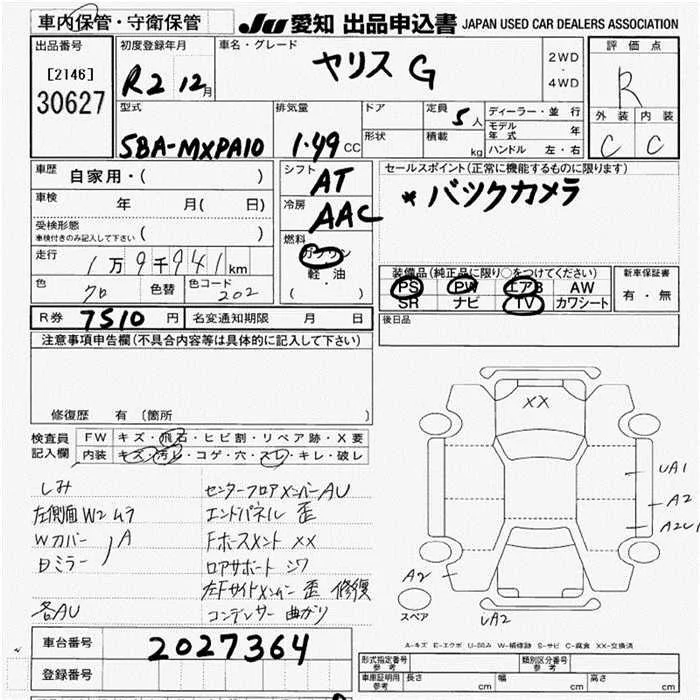 車内保管・守衛保管
JU 愛知 出品申込書 JAPAN USED CAR DEALERS ASSOCIATION
出品番号
[2146]
30627
初度登録年月
R2 12月
車名・グレード
ヤリス G
2WD
・
4WD
評価点
R
外装 内装
C C
型式
5BA-MXPA10
排気量
1.49 CC
ドア
形状
定員
5人
積載
kg
ディーラー・並行
モデル年式 年
ハンドル 左・右
車歴
自家用・( )
車検
年 月( 日)
受検形態
車検付きのみ記入して下さい
( )
走行
1万9千941km
色
クロ
色替
色コード
202
シフト
AT
冷房
AAC
燃料
ガソリン
・
軽油
( ・ )
セールスポイント(正常に機能するものに限り)
*バックカメラ
装備品(純正品に限り○をつけてください)
PS PW エアB AW
SR ナビ TV カワシート
新車保証書
有・無
R券 7510 円
名変通知期限 月 日
後日品
注意事項申告欄(不具合内容等は具体的に記入して下さい)
修復歴 有 〔箇所 〕
検査員記入欄
FW キズ・飛石・ヒビ割・リペア跡・X要
内装 キズ・汚レ・コゲ・穴・スレ・キレ・破レ
しみ
左側面 W2 ムラ
Wカバー
Dミラー A
各AU
センターフロアメンバーAU
エンドパネル 歪
Fホースメント XX
ロアサポート シワ
左Fサイドメンバー 歪 修復
コンデンサー 曲がり
XX
UA1
A2
A2U1
A2
UA2
スペア
A-キズ E-エクボ U-凹み W-補修跡 S-サビ C-腐食 XX-交換済
車台番号
2027364
登録番号
形式指定番号
参考
類別区分番号
参考
車庫証明用
参考
長さ cm
幅 cm
高さ cm